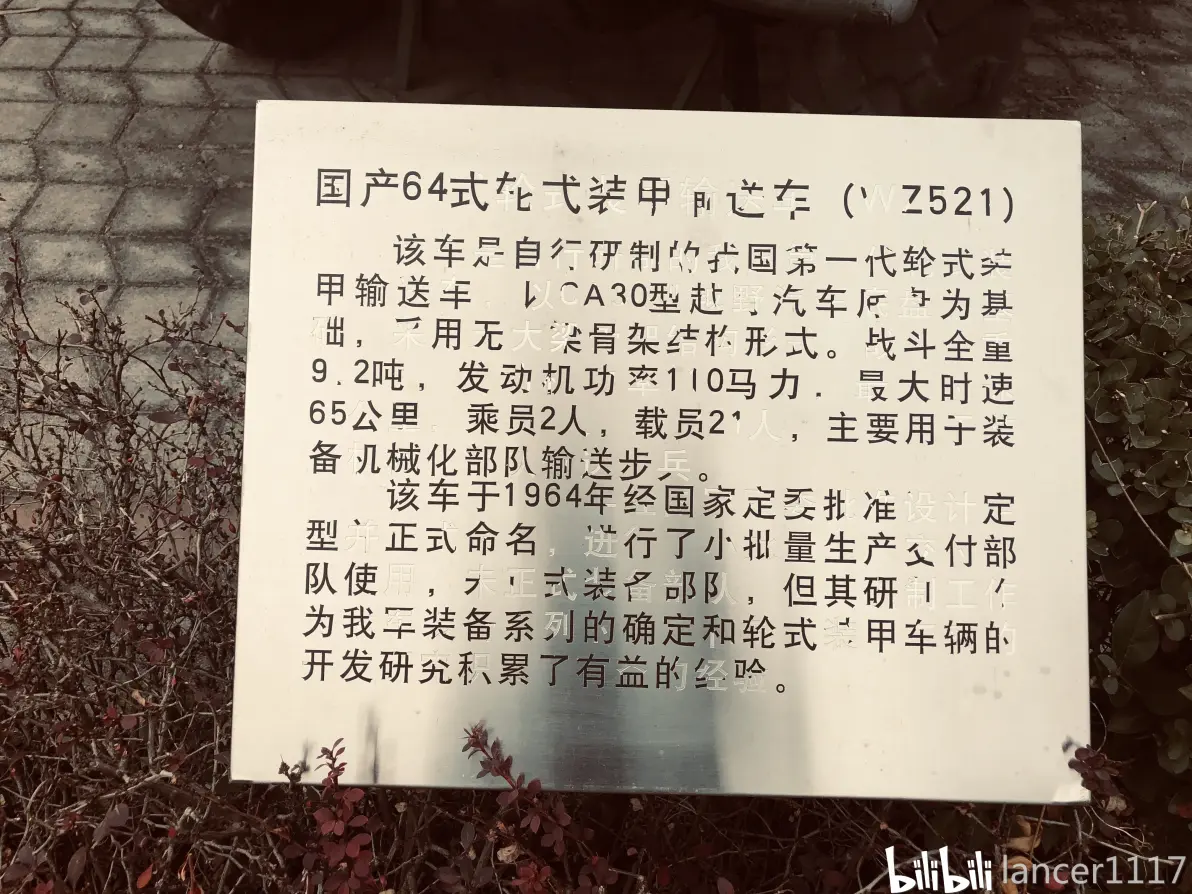 国产64式轮式装甲输送车（WZ521）
该车是自行研制的我国第一代轮式装
甲输送车，以CA30型越野汽车底盘为基
础，采用无大梁骨架结构形式。战斗全重
9.2吨，发动机功率110马力，最大时速
65公里，乘员2人，载员21人，主要用于装
备机械化部队输送步兵。
该车于1964年经国家定委批准设计定
型并正式命名，进行了小批量生产交付部
队使用，未正式装备部队，但其研制工作
为我军装备系列的确定和轮式装甲车辆的
开发研究积累了有益的经验。
bilibili lancer1117